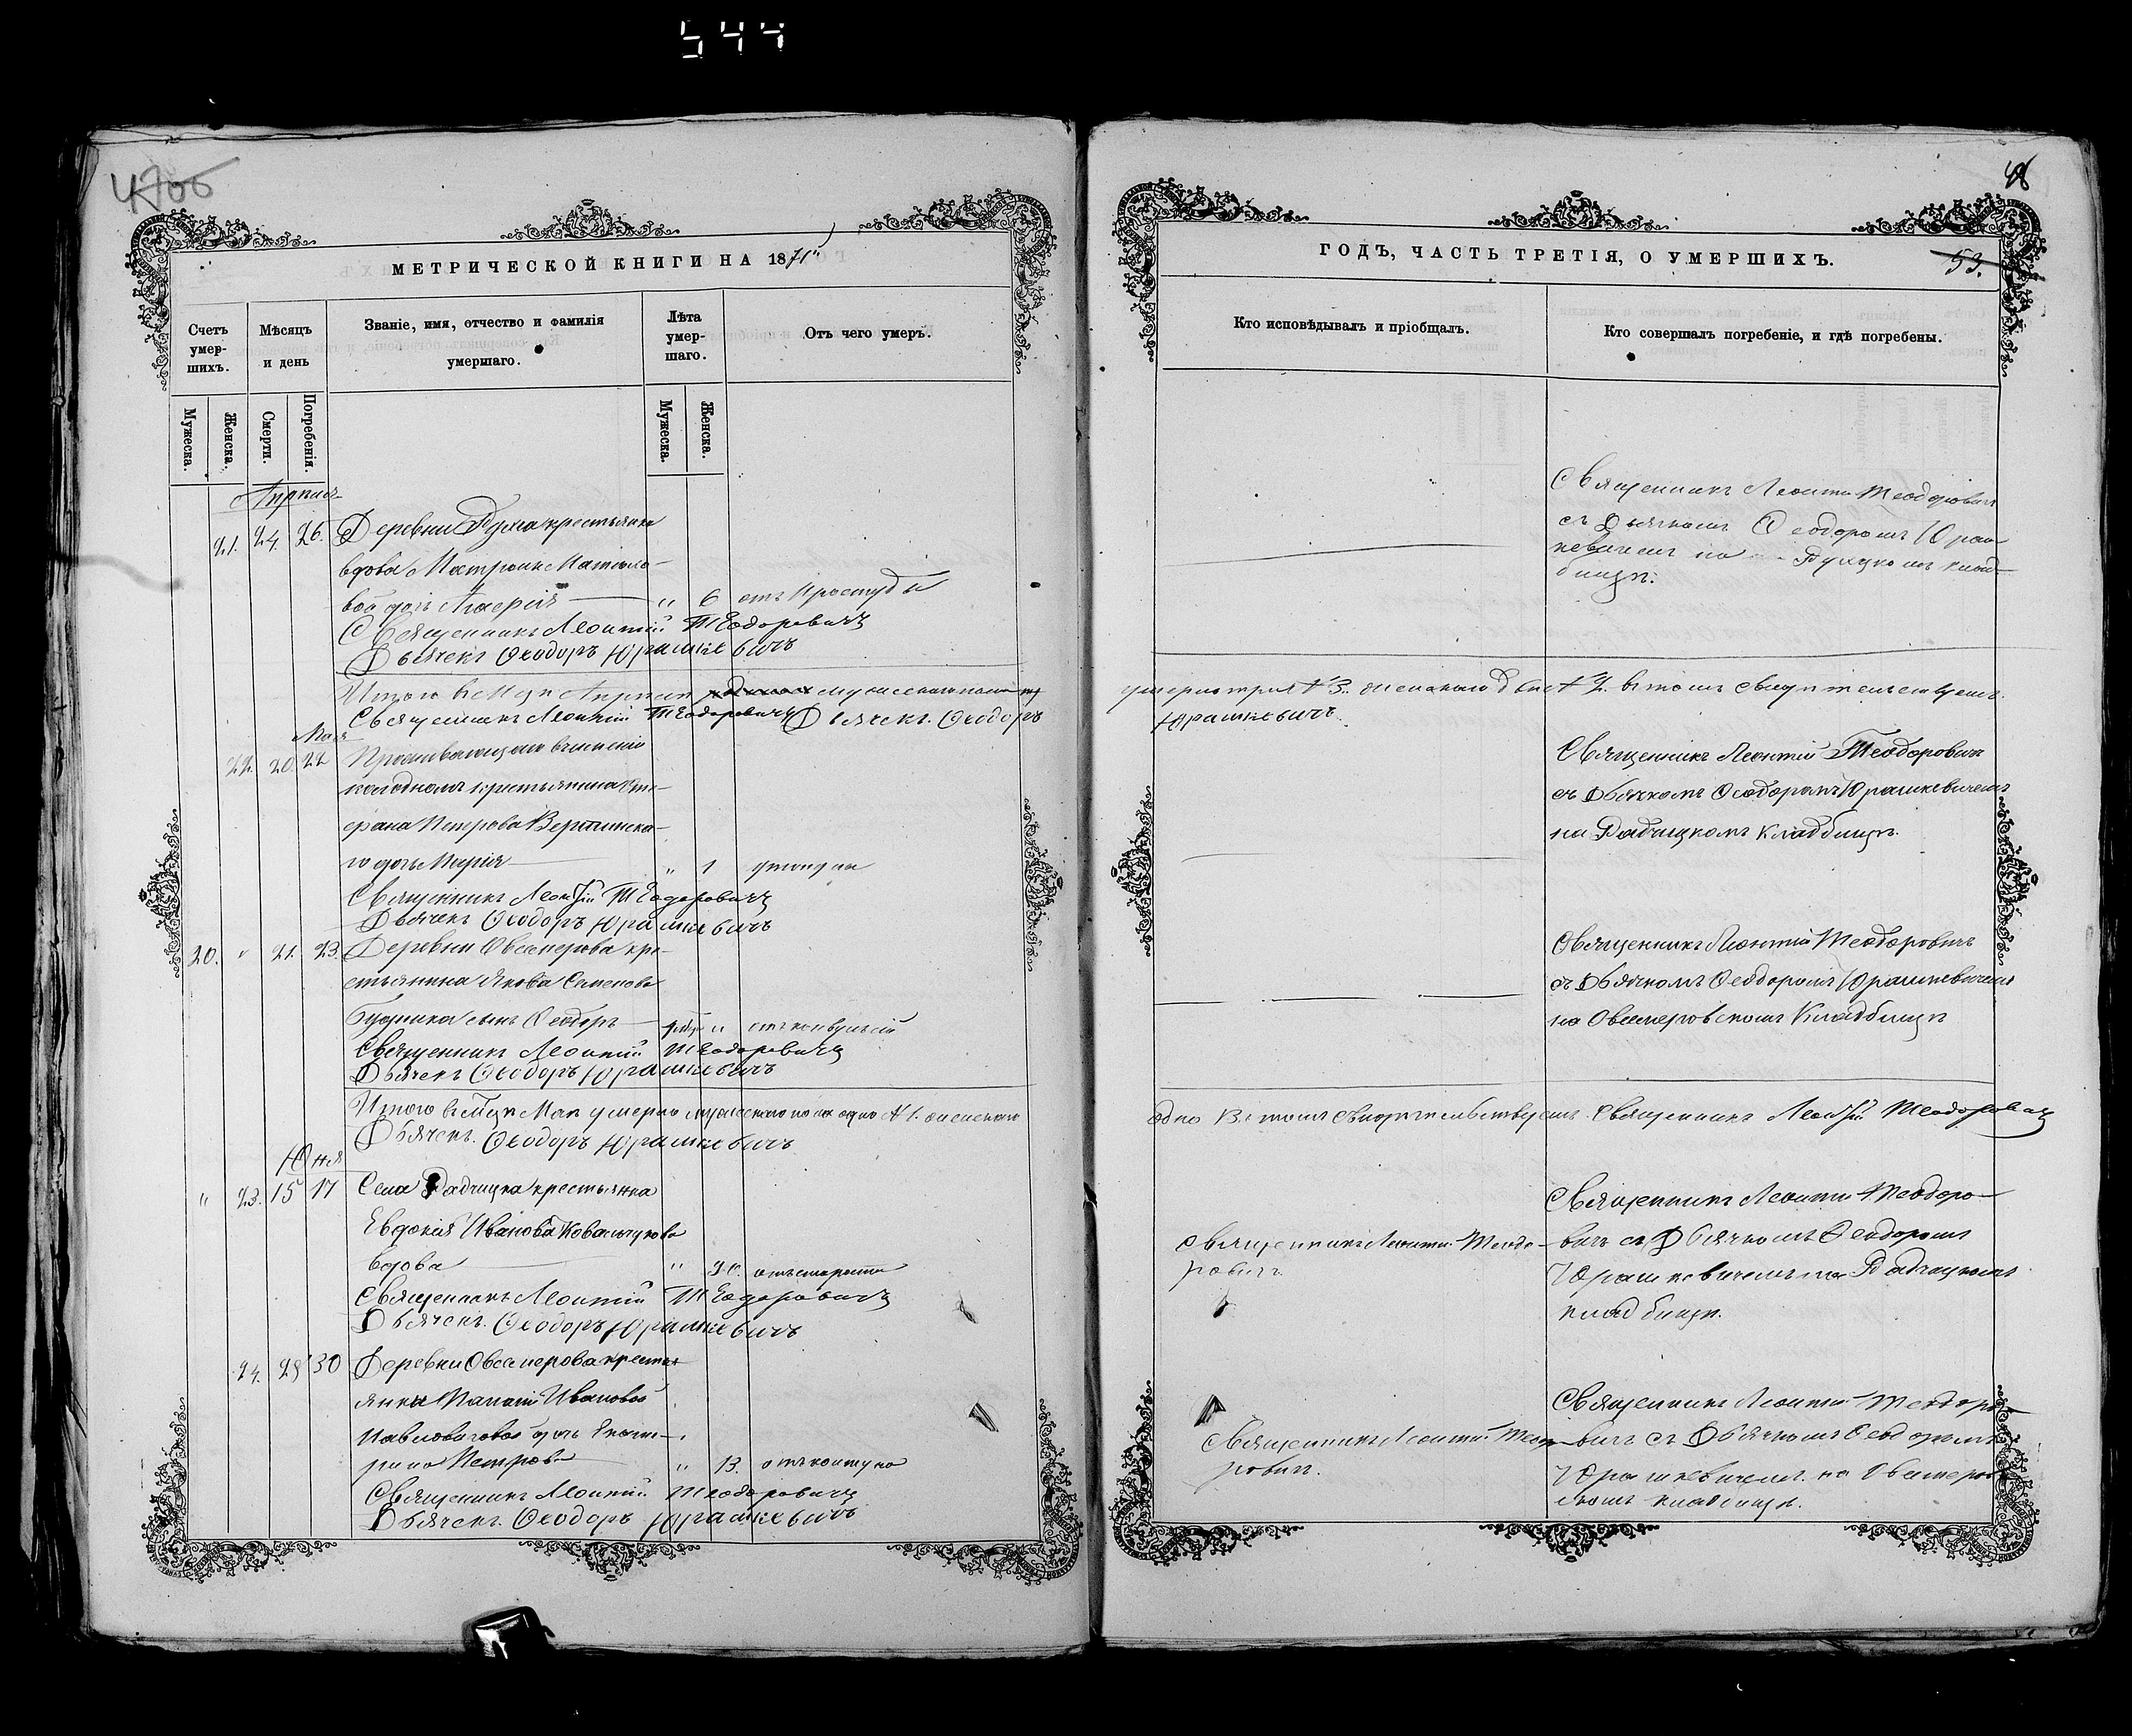 544
4706
МЕТРИЧЕСКОЙ КНИГИ НА 1871
Счетъ умер-шихъ.
Мѣсяцъ и день
Званіе, имя, отчество и фамилія умершаго.
Лѣта умер-шаго.
Отъ чего умеръ.
Мужеска.
Женска.
Смерти.
Погребенія.
Мужеска.
Женска.
21. 24. 26. Деревни крестьянки
вдовы
" 6 отъ простуды
Священникъ Леонтій Теодоровичъ
Дьячекъ Ѳеодоръ Юрашкевичъ
Итого въ
Священникъ Леонтій Теодоровичъ Дьячекъ Ѳеодоръ
Мая
22. 20. 22 Проживающаго въ имѣніи
крестьянина Сте-
фана Петрова Вертинска-
го дочь Марія " 1
Священникъ Леонтій Теодоровичъ
Дьячекъ Ѳеодоръ Юрашкевичъ
20. " 21. 23. Деревни Овсемерова кре-
стьянина Якова Семенова
сынъ Ѳеодоръ
Священникъ Леонтій Теодоровичъ
Дьячекъ Ѳеодоръ Юрашкевичъ
Итого въ Маѣ умерло мужескаго пола одно №1. женскаго
Дьячекъ Ѳеодоръ Юрашкевичъ
Юня
" 23. 15 17 Села Радчицка крестьянка
Евдокія Иванова Ковальчукова
вдова " отъ старости
Священникъ Леонтій Теодоровичъ
Дьячекъ Ѳеодоръ Юрашкевичъ
24. 28 30 Деревни Овсемерова крестья
янки Ивановой
дочь Екате-
рина Петрова " 13.
Священникъ Леонтій Теодоровичъ
Дьячекъ Ѳеодоръ Юрашкевичъ
48
ГОДЪ, ЧАСТЬ ТРЕТІЯ, О УМЕРШИХЪ.
53.
Кто исповѣдывалъ и пріобщалъ.
Кто совершалъ погребеніе, и гдѣ погребены.
Священникъ Леонтій Теодоровичъ
съ Дьячкомъ Ѳеодоромъ Юраш-
кевичемъ на клад-
бищѣ.
умерло три №3. женскаго въ томъ свидѣтельствуемъ.
Юрашкевичъ
Священникъ Леонтій Теодоровичъ
съ Дьячкомъ Ѳеодоромъ Юрашкевичемъ
на Радчицкомъ кладбищѣ.
Священникъ Леонтій Теодоровичъ
съ Дьячкомъ Ѳеодоромъ Юрашкевичемъ
на Овсемеровскомъ Кладбищѣ
одно въ томъ свидѣтельствуемъ. Священникъ Леонтій Теодоровичъ
Священникъ Леонтій Теодо-
ровичъ.
Священникъ Леонтій Теодоро-
вичъ съ Дьячкомъ Ѳеодоромъ
Юрашкевичемъ на Радчицкомъ
кладбищѣ.
Священникъ Леонтій Теодо-
ровичъ.
Священникъ Леонтій Теодоро-
вичъ съ Дьячкомъ Ѳеодоромъ
Юрашкевичемъ на Овсемеров
скомъ кладбищѣ.